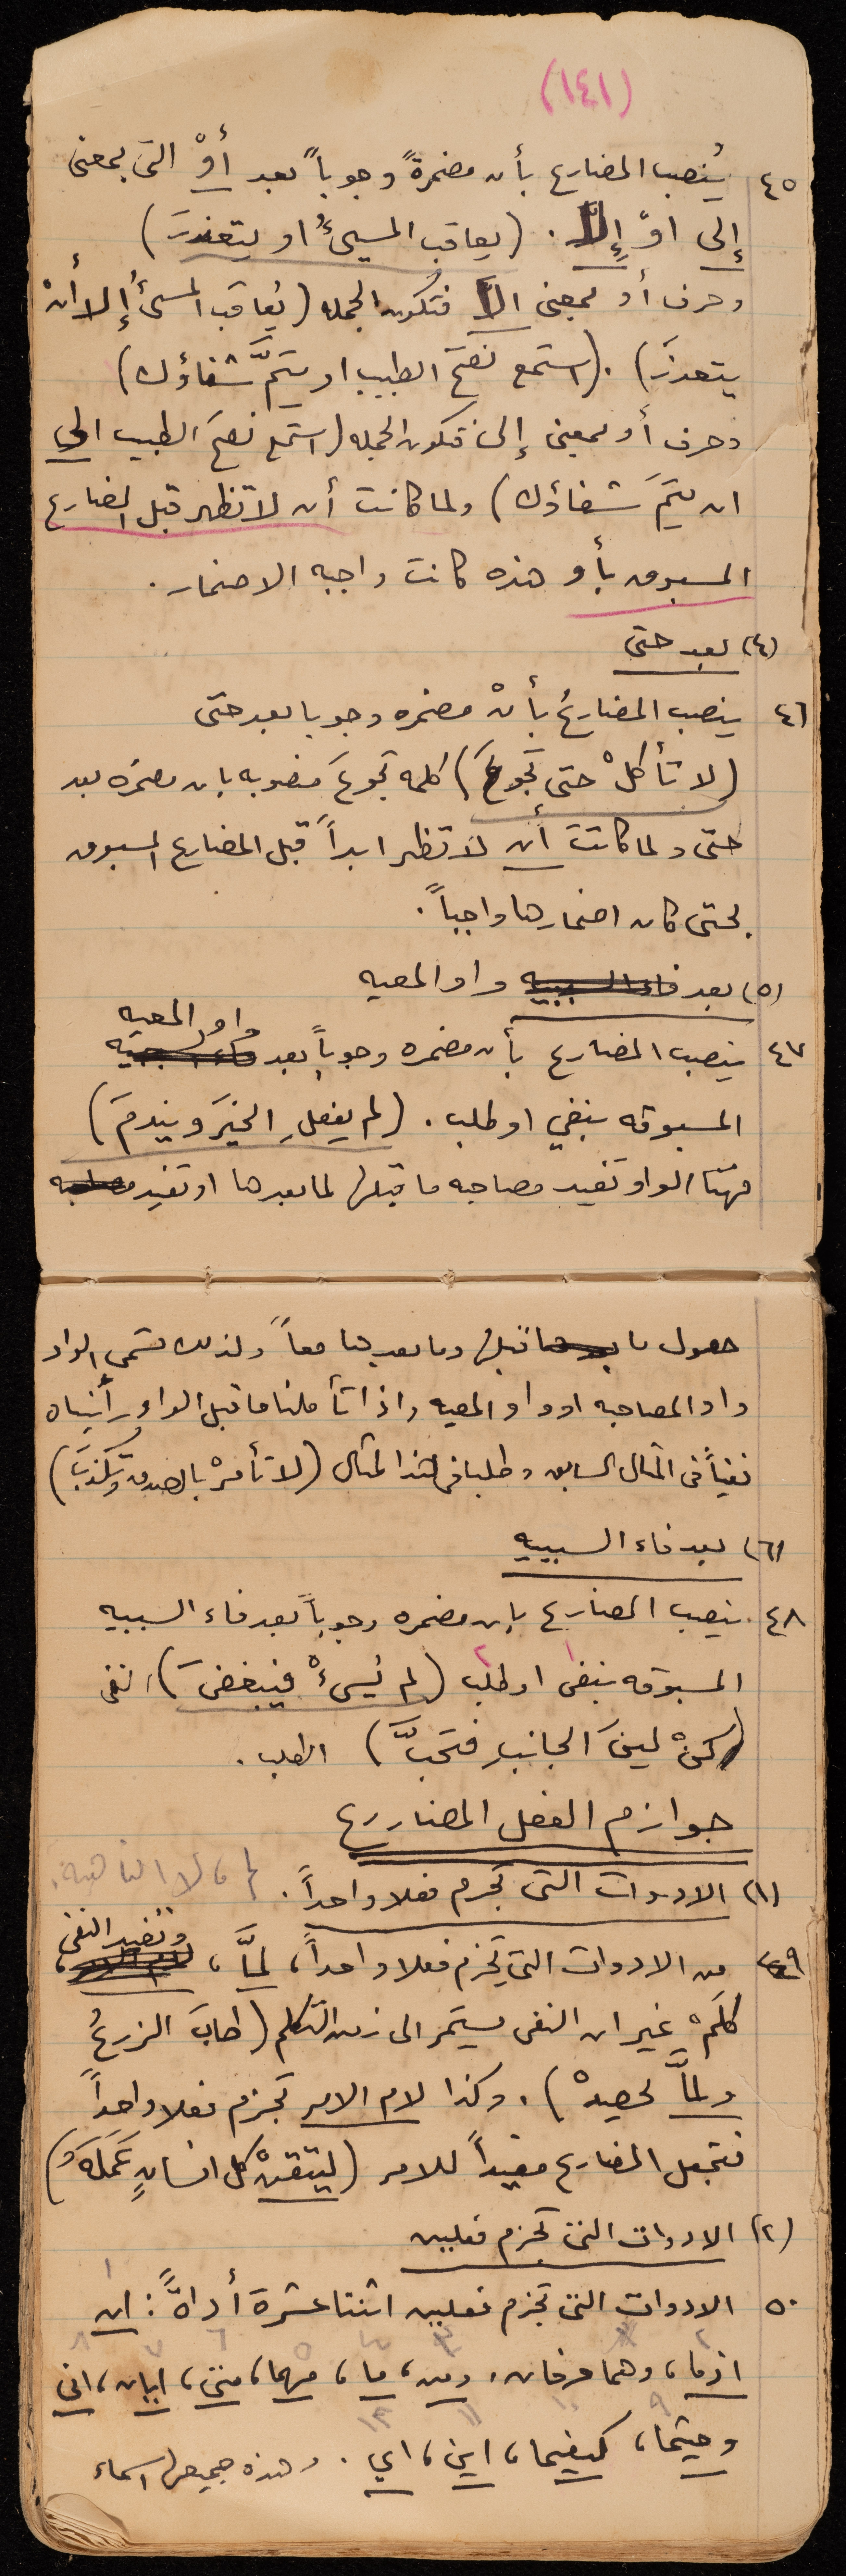 (١٤١)
٤٥ يُنصب المضارع بأن مضمرةً وجوباً بعد أوْ التى بمعنى
إلى اوْ إلاّ . (يعاقب المسيءُ او يتعذرَ)
وحرف أو بمعنى الاّ فتكون الجمله (يُعاقب المسئُ إلا أنْ
يتعذرَ) . (استمع نصحَ الطبيب او يتمَّ شفاؤك)
وحرف أو بمعنى إلى فتكون الجمله (استمع نصحَ الطبيب الى
ان يتمَ شفاؤك) ولما كانت أن لا تظهر قبل المضارع
المسبوق بأو هذه كانت واجبه الاضمار .
(٤) بعد حتى
٤٦ ينصب المضارعُ بأنْ مضمره وجوبا بعد حتى
(لا تأكلْ حتى تجوعَ) كلمه تجوعَ منصوبه بان مضمره بعد
حتى ولما كانت أن لا تظهر ابداً قبل المضارع المسبوق
بحتى كان اضمارها واجباً .
(٥) بعد فاء السببيه واو المعيه
واو المعيه
٤٧ ينصب المضارع بأن مضمره وجوباً بعد فاء السببيه
المسبوقه بنفي او طلب . (لم يفعلِ الخيَر ويندمَ)
فهنا الواو تفيد مصاحبه ما قبلها لما بعدها او تفيد مصاحبه
حصول ما بعدها قبلها وما بعدها معاً ولذلك تسمى الواو
واو المصاحبه او واو المعيه واذا تأملنا ما قبل الواو رأيناه
نفياً فى المثال السابق وطلبا فى هذا المثال (لا تأمرْ بالصدق وتكذبَ)
(٦) بعد فاء السببيه
٤٨ ينصب المضارع بان مضمره وجوباً بعد فاء السببيه
المسبوقه بنفى ١ او طلب ٢ (لم يُسىءْ فيبغضَ) ، نفى
(كنْ لينَ الجانبِ فتحبَّ) الطلب .
جوازم الفعل المضارع
(١) الادوات التى تجزم فعلا واحداً . لم ، لا الناهية .
وتفيد النفى
٤٩ من الادوات التي تجزم فعلا واحداً ، لمَّا ،
كلَمْ غير ان النفى يستمر الى زمن التكلم (طابَ الزرعُ
ولمَّا يحصدْ) . وكذا لام الامر تجزم فعلا واحداً
فتجعل المضارع مفيداً للامر (ليتقنْ كل انسانٍ عَمَلَهُ)
(٢) الادوات التى تجزم فعلين
٥٠ الادوات التى تجزم فعلين اثنتا عشرة أداةً : ان
اذما ، وهما حرفان ، ومن ، ما ، مهما ، متى ، ايان ، انى
وحيثما ، كيفما ، اين ، اي . وهذه جميعها اسماء